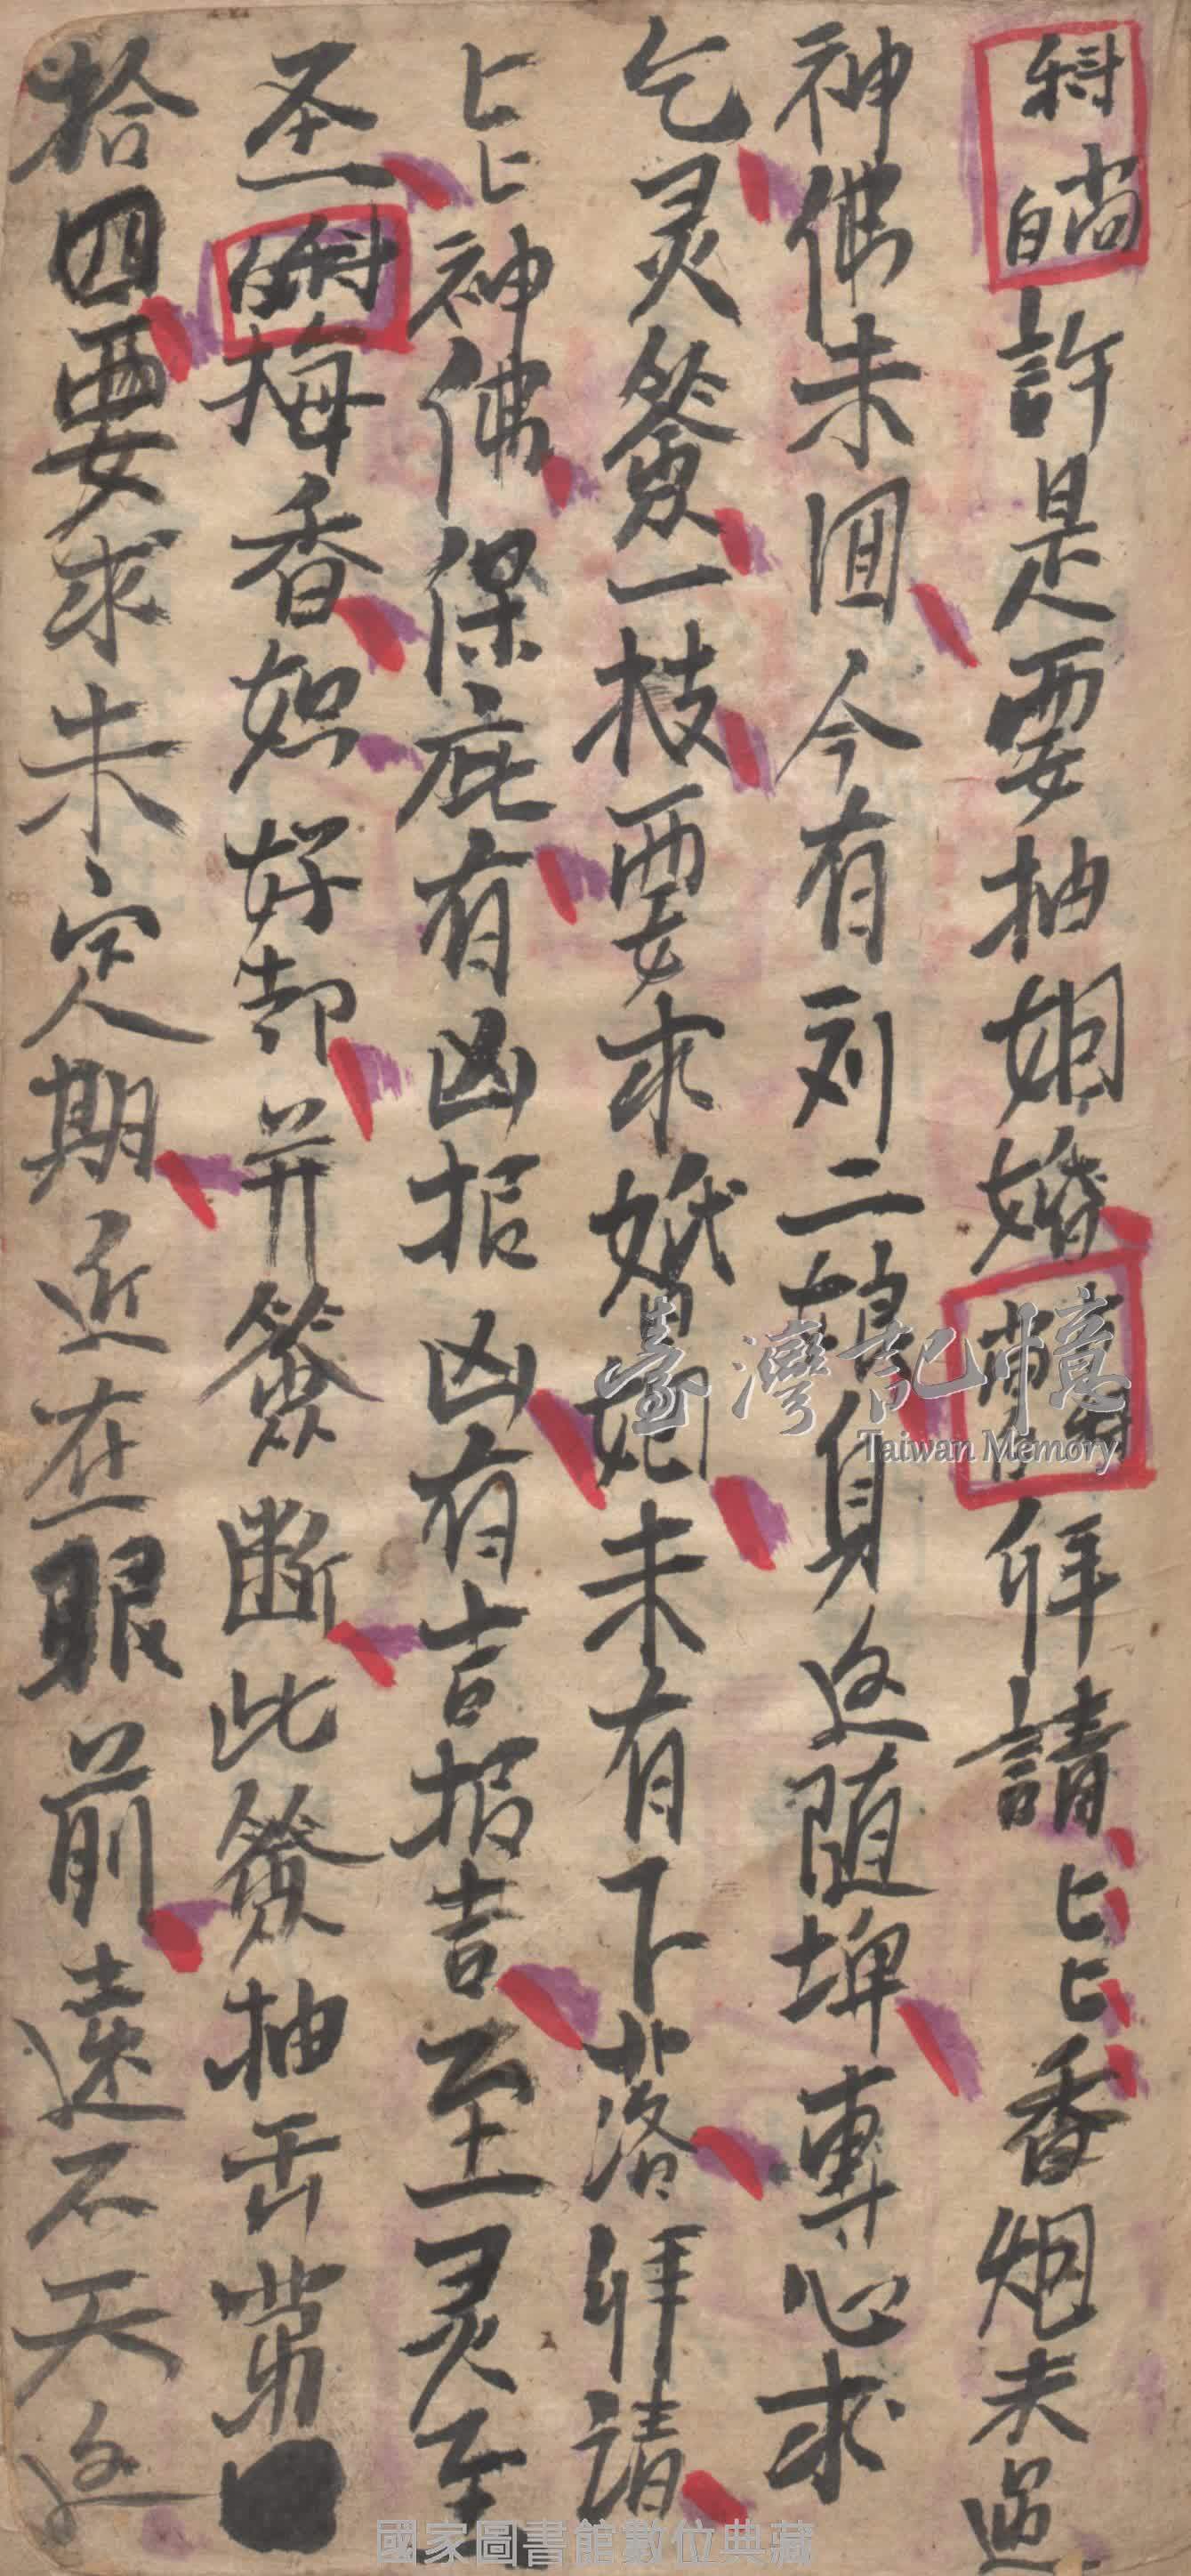 科尚白許是要抽姻婚科尚白拜請匕匕香烟未過
神佛未囬今有列二娘身返随埤專心求
乞灵簽一枝要求婚姻未有下落拜請
匕匕神佛保庇有凶报凶有吉报吉至灵至
圣科白梅香恕好却并簽断此簽抽出第
拾四要求未定期近在眼前遠不天返
臺灣記憶
Taiwan Memory
國家圖書館數位典藏